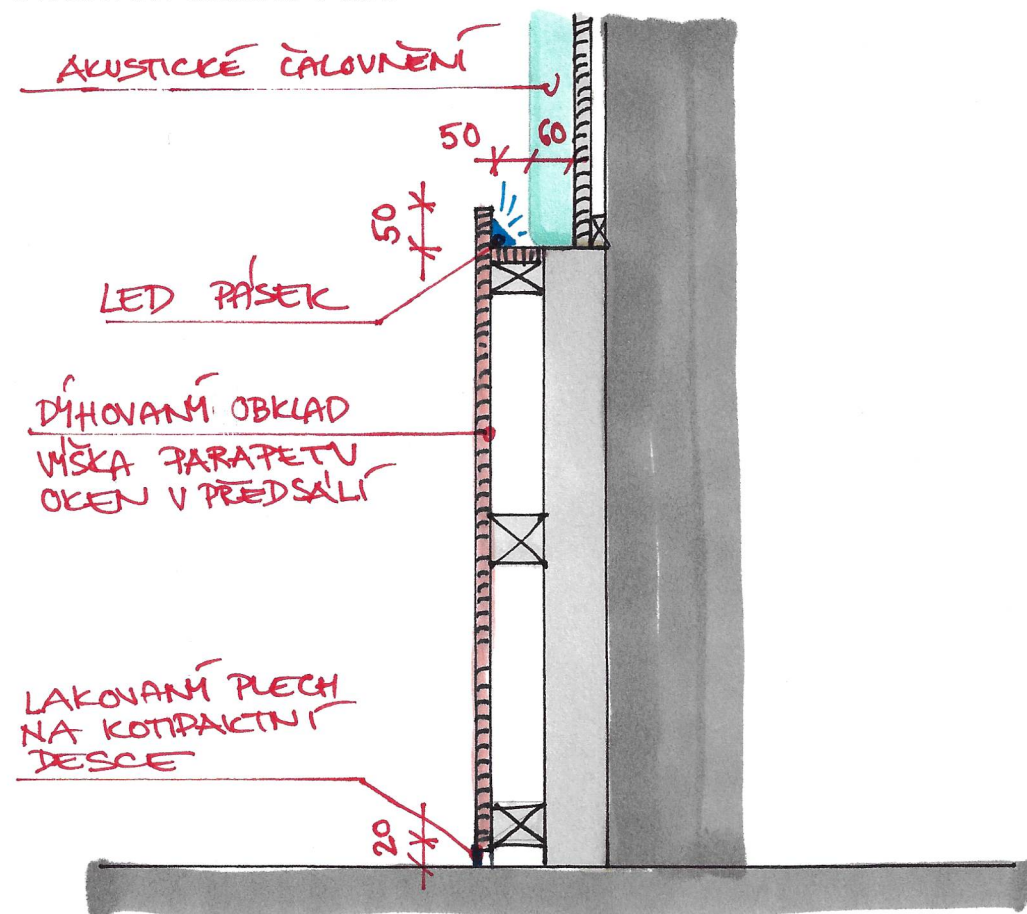 AKUSTICKÉ ČALOUNĚNÍ
50 60
50
LED PÁSEK
DÝHOVANÝ OBKLAD
VÝŠKA PARAPETU
OKEN V PŘEDSÁLÍ
LAKOVANÝ PLECH
NA KOMPAKTNÍ
DESCE
20